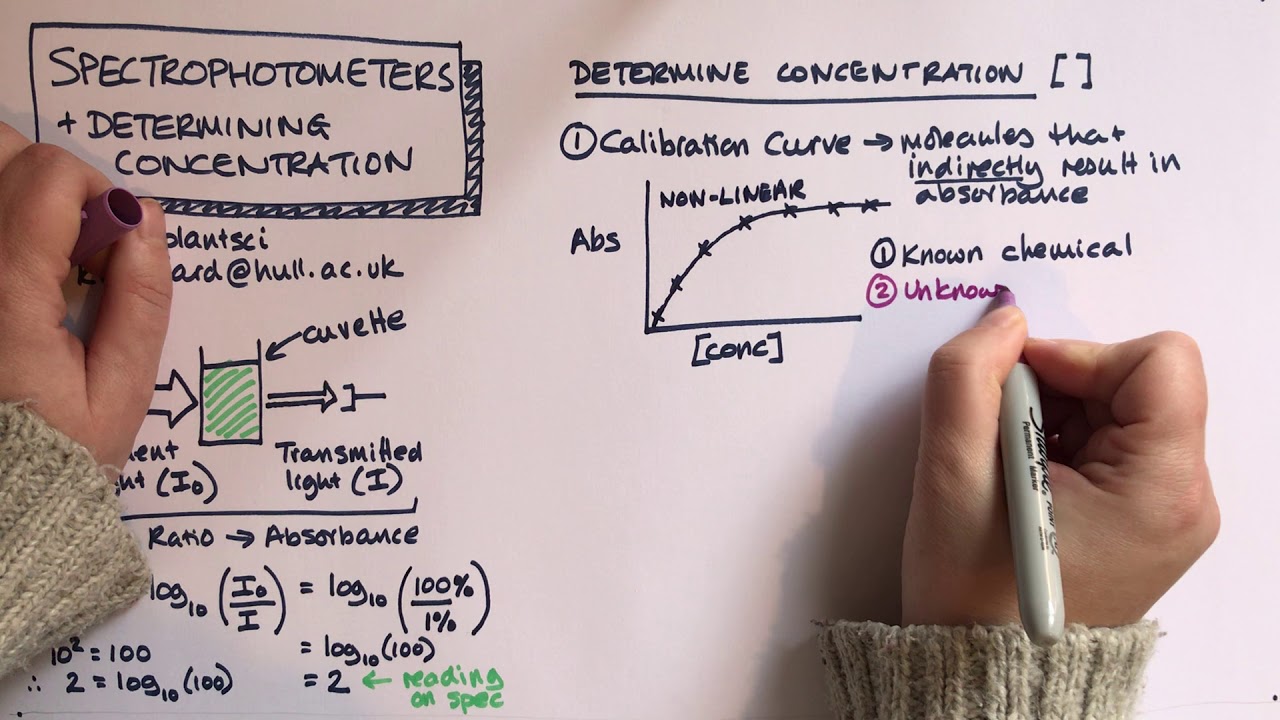 SPECTROPHOTOMETERS
+ DETERMINING
CONCENTRATION
@hull.ac.uk
cuvette
Transmitted
light (I)
(I₀)
Ratio → Absorbance
log₁₀ (I₀/I) = log₁₀ (100%/1%)
10² = 100
= log₁₀(100)
∴ 2 = log₁₀(100)
= 2 ← reading
on spec
DETERMINE CONCENTRATION [ ]
① Calibration Curve → molecules that
indirectly result in
absorbance
NON-LINEAR
Abs
[conc]
① Known chemical
② Unknow
Sharpie
Permanent Marker